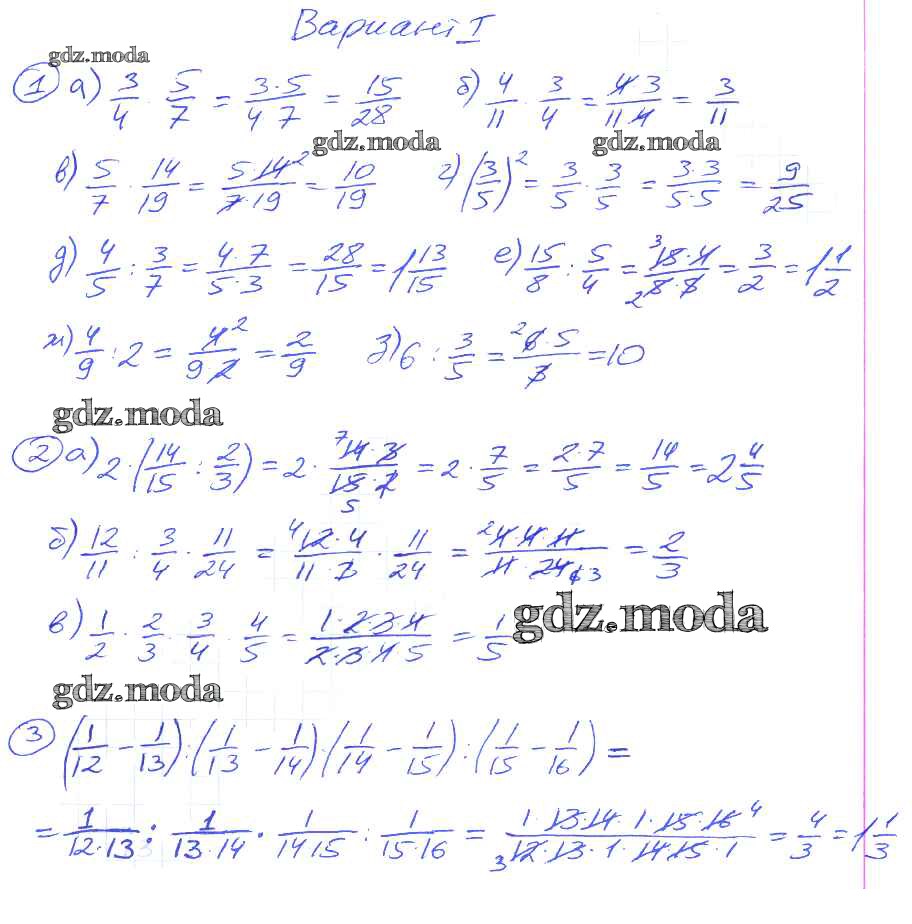 Вариант I
gdz.moda
① а) 3/4 · 5/7 = 3·5/4 7 = 15/28 б) 4/11 · 3/4 = 4 3/11 4 = 3/11
gdz.moda gdz.moda
в) 5/7 · 14/19 = 5·14²/7·19 = 10/19 г) (3/5)² = 3/5 · 3/5 = 3·3/5·5 = 9/25
д) 4/5 : 3/7 = 4·7/5·3 = 28/15 = 1 13/15 е) 15/8 : 5/4 = ³15·4/₂8·5 = 3/2 = 1 1/2
ж) 4/9 : 2 = 4²/9 2 = 2/9 з) 6 : 3/5 = ²6·5/3 = 10
gdz.moda
② а) 2·(14/15 : 2/3) = 2 · ⁷14·3/15·2 5 = 2 · 7/5 = 2·7/5 = 14/5 = 2 4/5
б) 12/11 : 3/4 · 11/24 = ⁴12·4/11·3 · 11/24 = ²4·4·11/11·24 6 3 = 2/3
в) 1/2 · 2/3 · 3/4 · 4/5 = 1·2·3·4/2·3·4·5 = 1/5
gdz.moda
gdz.moda
③ (1/12 − 1/13) : (1/13 − 1/14) · (1/14 − 1/15) : (1/15 − 1/16) =
= 1/12·13 : 1/13·14 · 1/14 15 : 1/15·16 = 1·13·14·1·15·16 ⁴/₃12·13·1·14·15·1 = 4/3 = 1 1/3